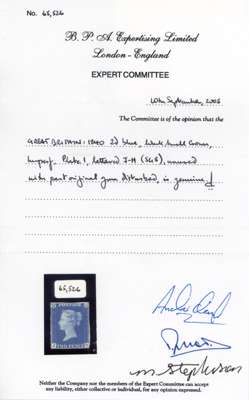 No. 65,526
B. P. A. Expertising Limited
London - England
EXPERT COMMITTEE
10th September, 2008
The Committee is of the opinion that the
GREAT BRITAIN: 1840 2d blue, White Small Crown,
Imperf., Plate 1, lettered J-H (SG5), unused
with part original gum disturbed, is genuine
65,526
POSTAGE
TWO PENCE
M Stephenson
Neither the Company nor the members of the Expert Committee can accept
any liability, either collective or individual, for any opinion expressed.